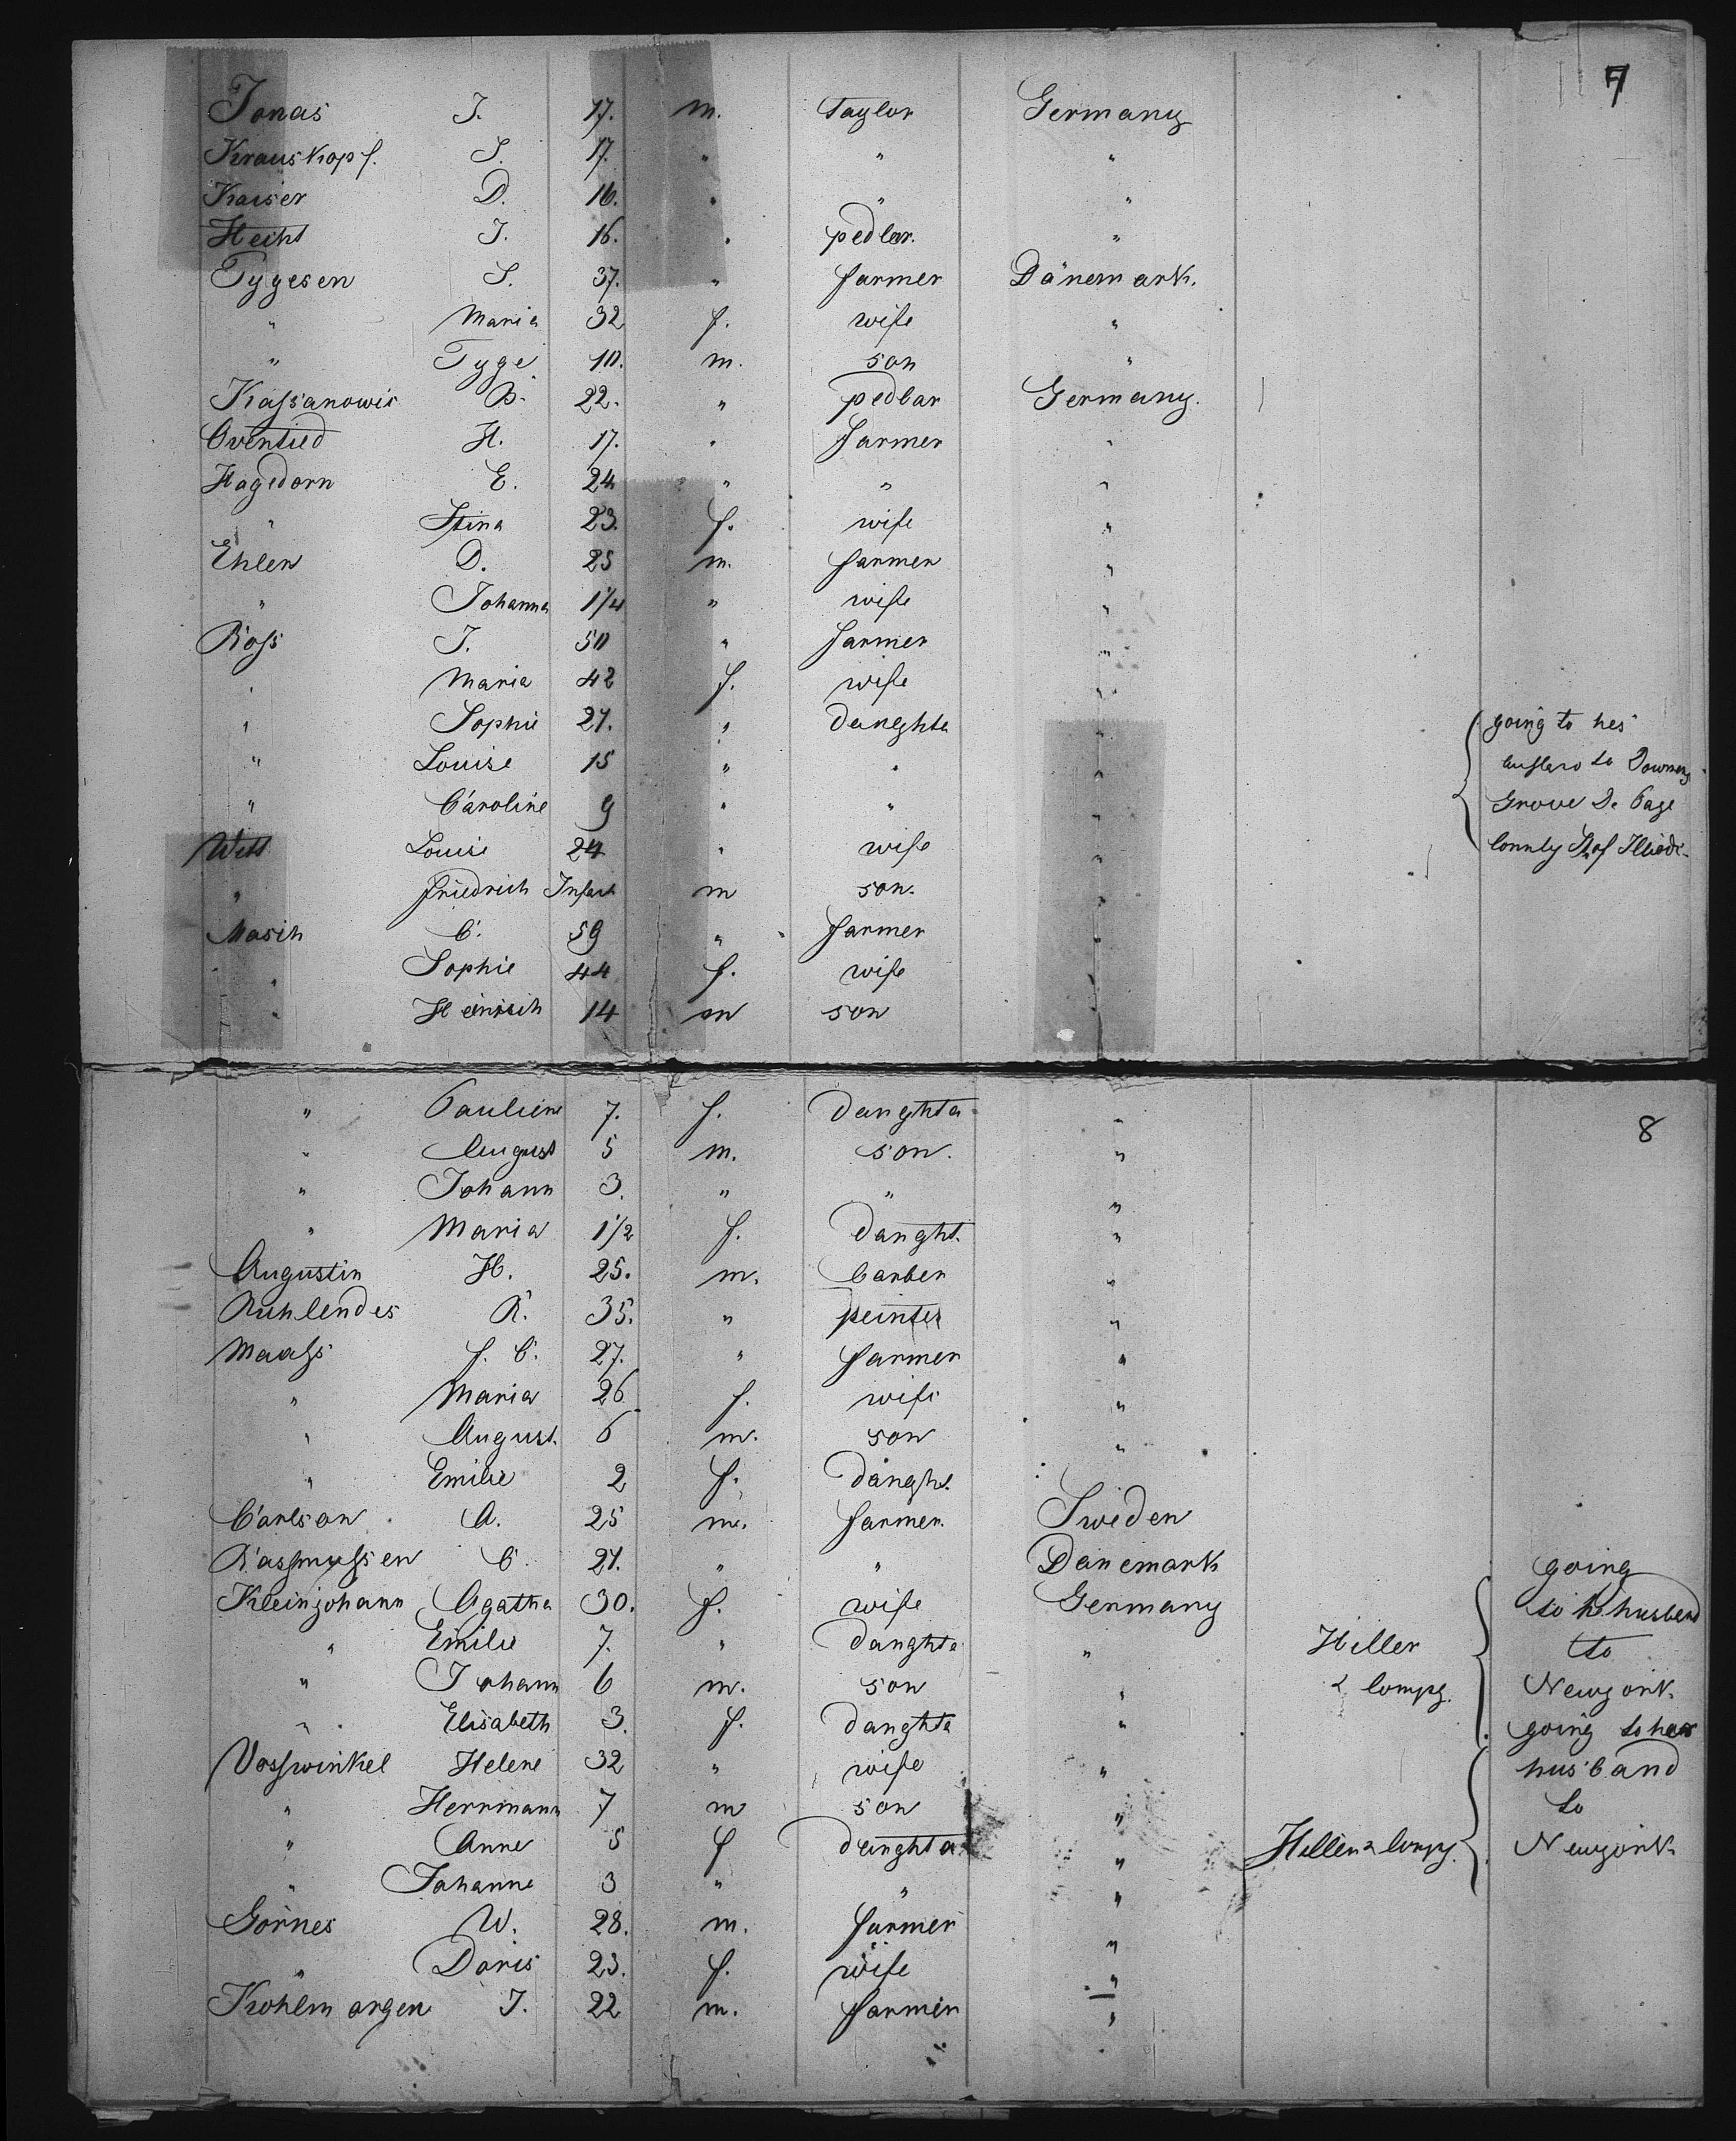 7
Jonas J. 17. m. Taylor Germany
Krauskopf. S. 17. " " "
Kaiser D. 16. " " "
Hecht J. 16. " pedlar. "
Tygesen S. 37. " farmer Dänemark.
" Maria 32 f. wife "
" Tyge 10. m. son "
Kassanowic B. 22. " pedlar Germany.
H. 17. " farmer "
Hagedorn E. 24 " " "
" Stina 23. f. wife "
Ehler D. 25 m. farmer "
" Johanna 1/4 " wife "
Ross J. 50 " farmer "
" Maria 42 f. wife "
" Sophie 21. " daughte " going to hes
" Louise 15 " " " to Downers
" Caroline 9 " " " Grove De Page
Witt Louise 24 " wife " County St of
" Friedrich Infant m son. "
Masch C. 59 " farmer "
" Sophie 44 f. wife "
" Heinrich 14 m son "
8
" Pauline 7. f. daughta "
" August 5 m. son. "
" Johann 3. " " "
" Maria 1 1/2 f. daught. "
Augustin H. 25. m. barber "
Ruhlendes R. 35. " peinter "
Maass f. C. 27. " farmer "
" Maria 26 f. wife "
" August. 6 m. son "
" Emilie 2 f. daught. "
Carlson A. 25 m. farmer. Sweden
Rassmussen C. 21. " " Danemark going
Kleinjohann Agatha 30. f. wife Germany to h husband
" Emilie 7. " daughte " Hiller to
" Johann 6 m. son " & Compg. Newyork.
" Elisabeth 3. f. daughte " going to her
Vosswinkel Helene 32 " wife " husband
" Herrmann 7 m son " to
" Anne 5 f daughta " Hiller & Compg. Newyork.
" Johanne 3 " " "
Görnes W. 28. m. farmer "
" Doris 23. f. wife "
Kohlmorgen J. 22 m. farmer "